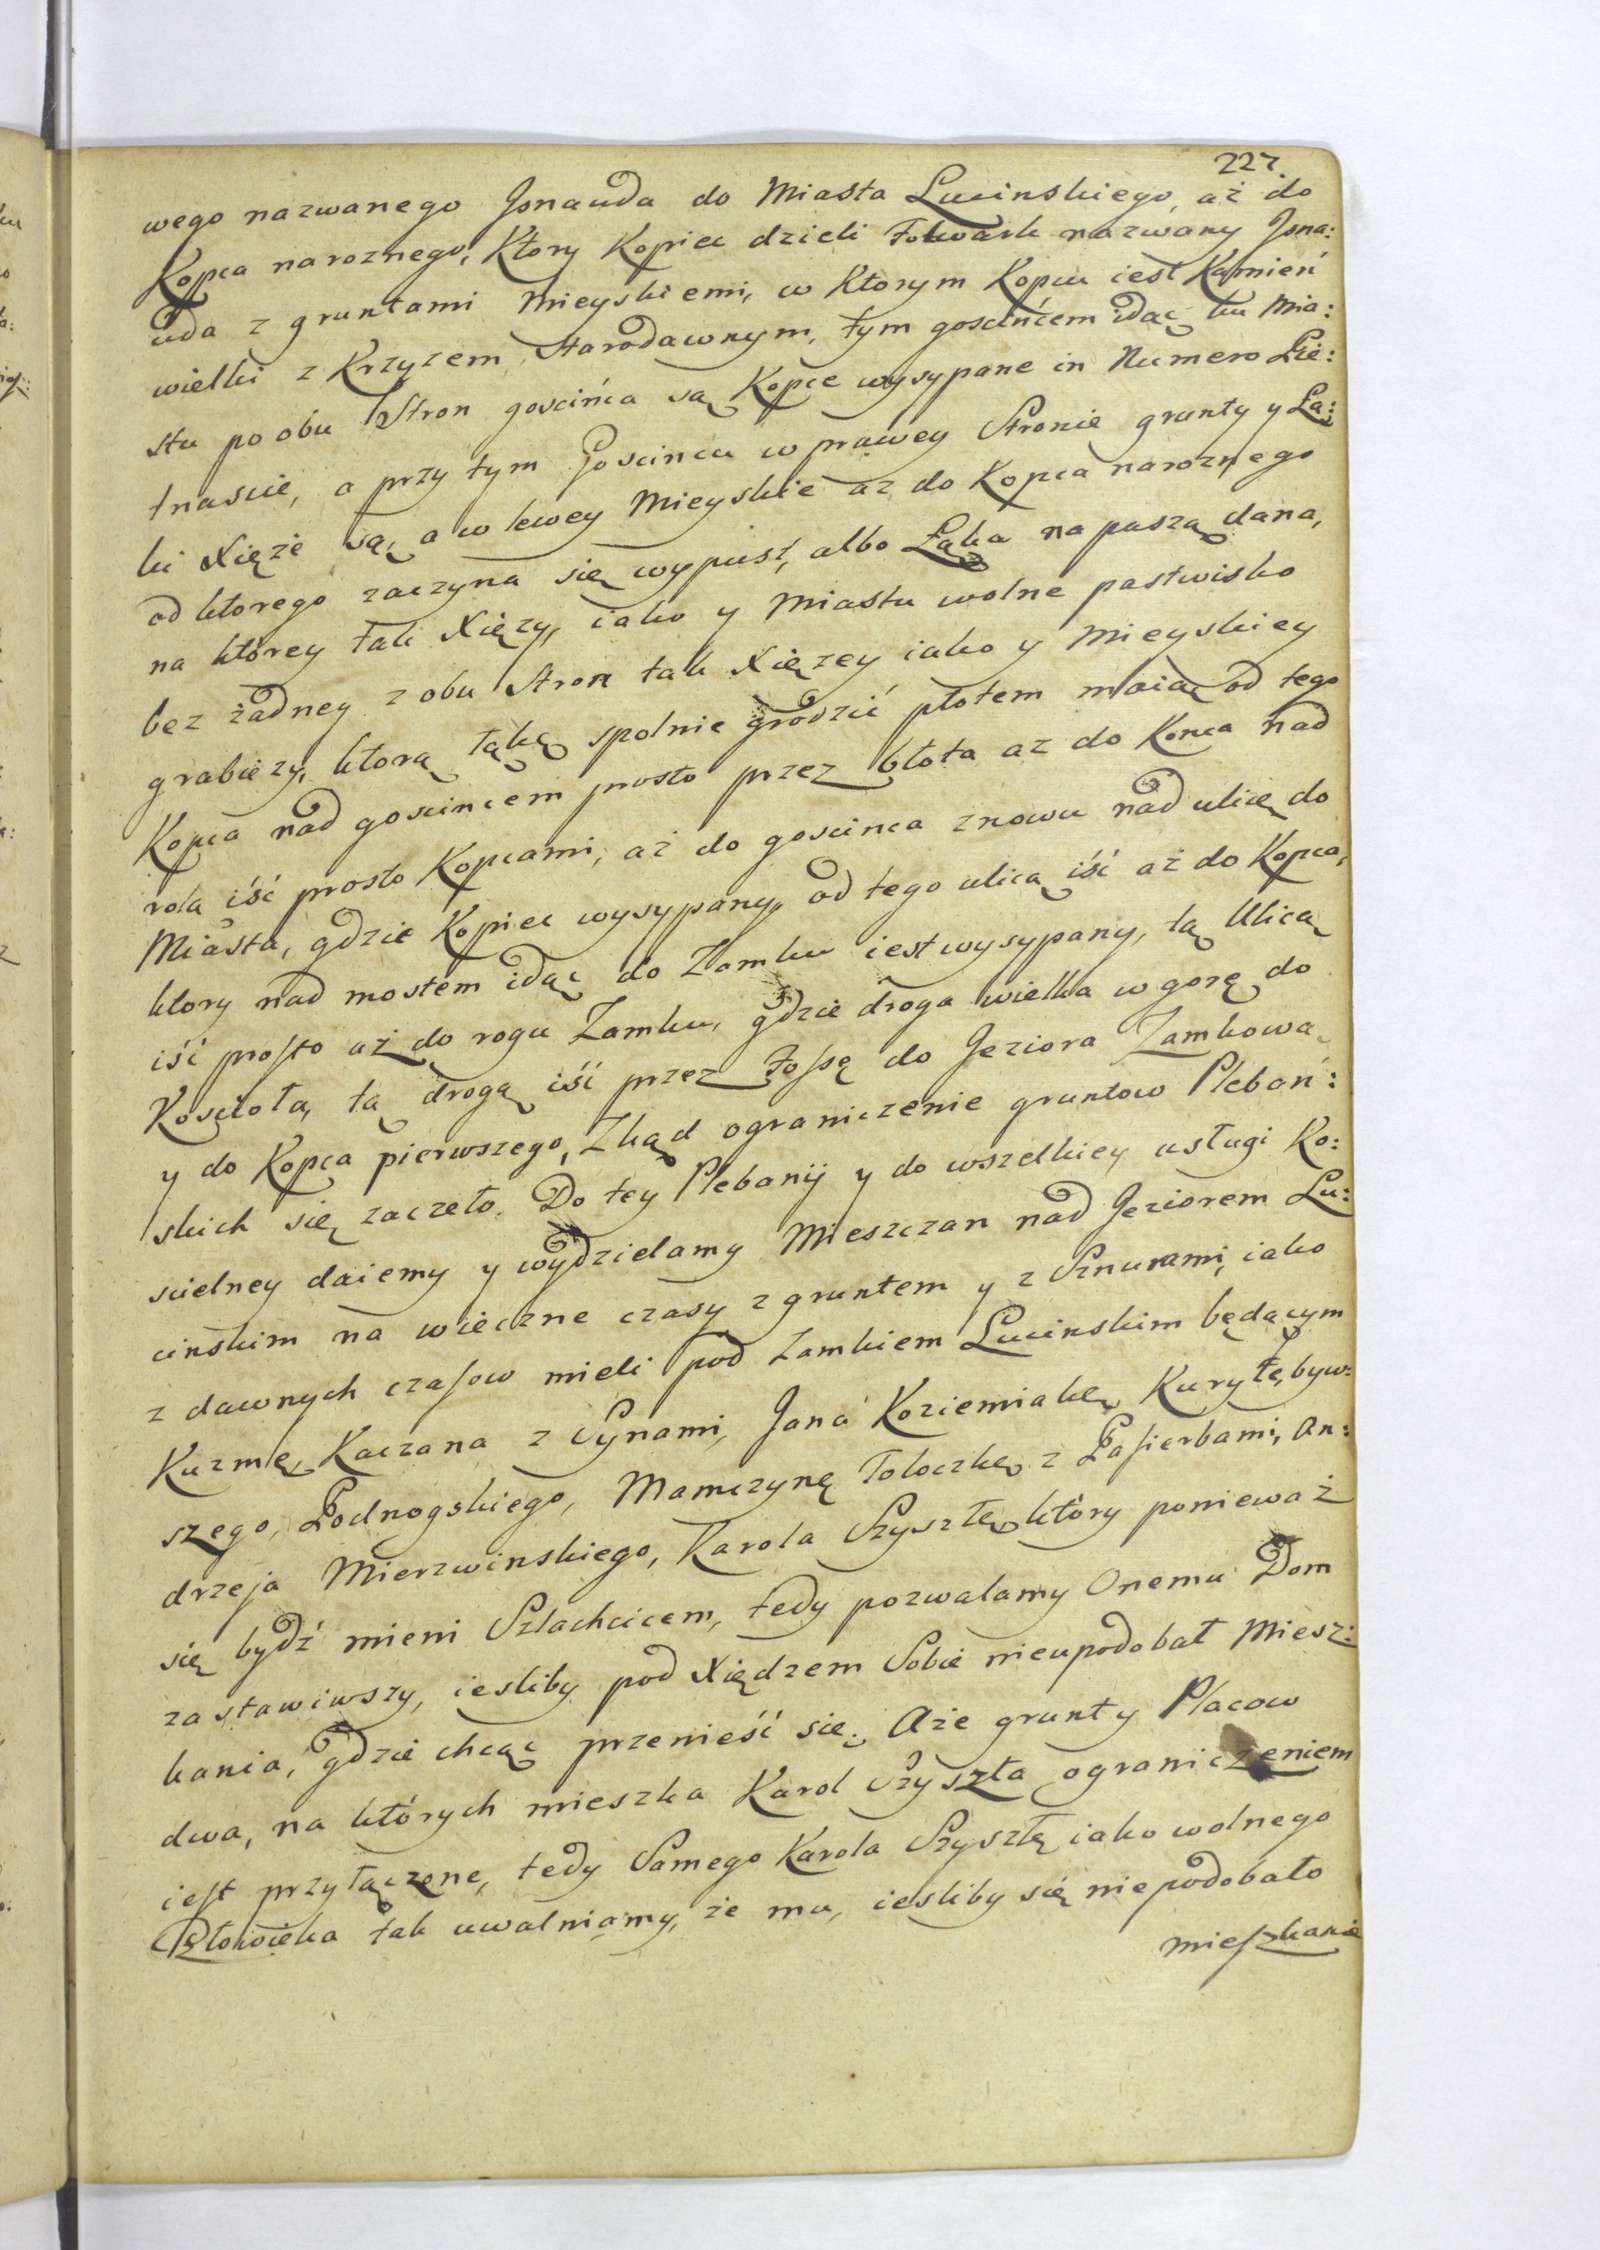 227.
wego nazwanego Jonauda do Miasta Lucinskiego, aż do
Kopca naroznego, Ktory Kopiec dzieli Folwark nazwany Jona:
uda z gruntami Mieyskiemi, w Ktorym Kopcu iest Kamień
wielki z Krzyzem Starodawnym, tym goscińcem idąc ku Mia:
stu po obu Stron goscińca są Kopce wysypane in Numero Pie:
tnascie, a przy tym Goscincu w prawey Stronie grunty y Łą:
ki Xięże są, a w lewey Mieyskie az do Kopca naroznego
od ktorego zaczyna się wypust, albo Łąka na paszą dana,
na którey tak Xięzy, iako y Miastu wolne pastwisko
bez żadney z obu Stron tak Xięzey iako y Mieyskiey
grabiezy, ktorą łąkę spolnie grodzić płotem maią od tego
Kopca nad goscincem prosto przez błota az do Konca nad
rola iść prosto Kopcami, aż do goscinca znowu nad ulicę do
Miasta, gdzie Kopiec wysypany, od tego ulicą iść aż do Kopca,
ktory nad mostem idąc do Zamku iest wysypany, tą Ulicą
iść prosto aż do rogu Zamku, gdzie droga wielka w gorę do
Kosciola, tą drogą iść przez Fossę do Jeziora Zamkowa
y do Kopca pierwszego, Zkąd ograniczenie gruntow Plebań:
skich się zaczeło. Do tey Plebanij y do wszelkiey usługi Ko:
scielney daiemy y wydzielamy Mieszczan nad Jeziorem Lu:
cinskim na wieczne czasy z gruntem y z Sznurami, iako
z dawnych czasow mieli pod Zamkiem Lucinskim będącym
Kuzmę Kaczana z Synami, Jana Koziemiakę, Kuryłę, byw:
szego, Podnogskiego, Mamczynę Toloczkę z Pasierbami, An:
drzeja Mierzwinskiego, Karola Szyszłę, który ponieważ
się bydź mieni Szlachcicem, tedy pozwalamy Onemu Dom
zastawiwszy, iesliby pod Xiędzem Sobie nieupodobał Miesz:
kania, gdzie chcąc przenieść się. Aże grunty Placow
dwa, na których mieszka Karol Szyszła ograniczeniem
iest przyłączone, tedy Samego Karola Szyszłę iako wolnego
Człowieka tak uwalniamy, że mu, iesliby się niepodobało
mieszkanie